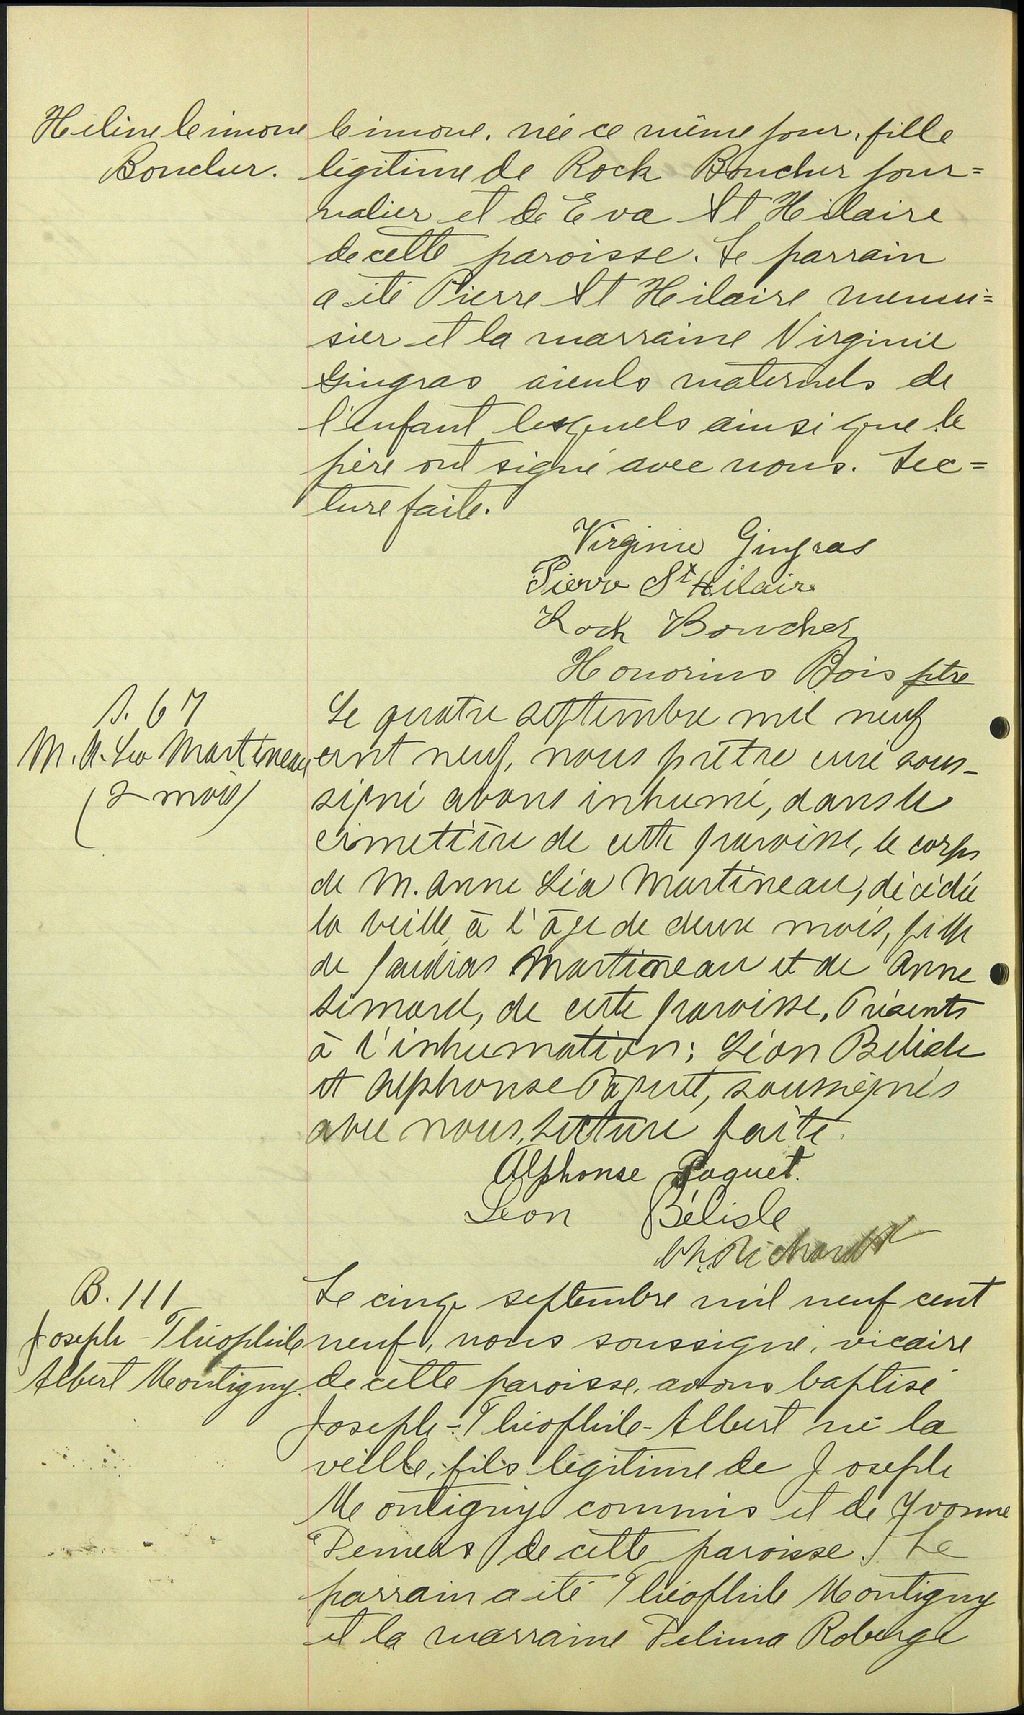 Héline Simone
Boucher.
Simone. née ce même jour, fille
légitime de Rock Boucher jour=
nalier et de Eva St Hilaire
de cette paroisse. Le parrain
a été Pierre St Hilaire menui=
sier et la marraine Virginie
Gingras aïeuls maternels de
l'enfant lesquels ainsi que le
père ont signé avec nous. Lec=
ture faite.
Virginie Gingras
Pierre St Hilaire
Roch Boucher
Honorius Bois ptre
S. 67
M. A. Léa Martineau
(2 mois)
Le quatre septembre mil neuf
cent neuf, nous prêtre curé sous-
signé avons inhumé, dans le
cimetière de cette paroisse, le corps
de M. Anne Léa Martineau, décédée
la veille à l'âge de deux mois, fille
de Gaudias Martineau et de Anne
Simard, de cette paroisse. Présents
à l'inhumation: Léon Bélisle
et Alphonse Paquet, soussignés
avec nous, Lecture faite.
Alphonse Paquet.
Léon Bélisle
Richard
B. 111
Joseph-Théophile
Albert Montigny.
Le cinq septembre mil neuf cent
neuf, nous soussigné, vicaire
de cette paroisse, avons baptisé
Joseph-Théophile-Albert né la
veille, fils légitime de Joseph
Montigny commis et de Yvonne
Demers de cette paroisse. Le
parrain a été Théophile Montigny
et la marraine Délima Roberge